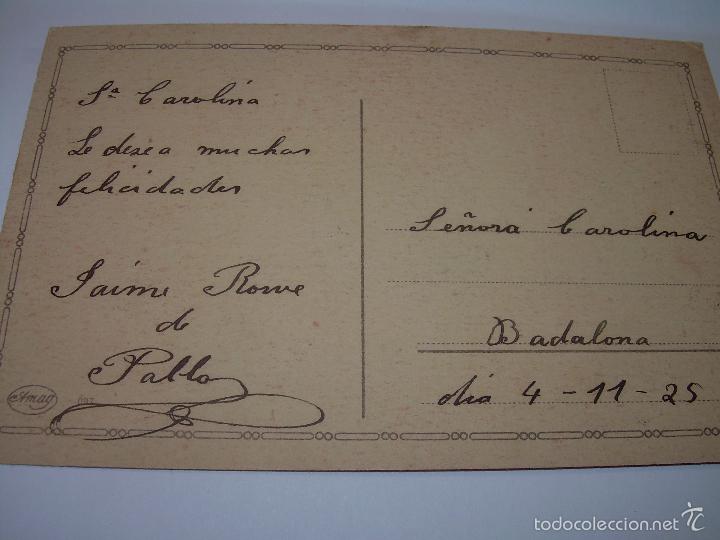 Sª Carolina
Le desea muchas
felicidades
Jaime Rowe
de
Pallo
Amag
Señora Carolina
Badalona
día 4-11-25
todocoleccion.net